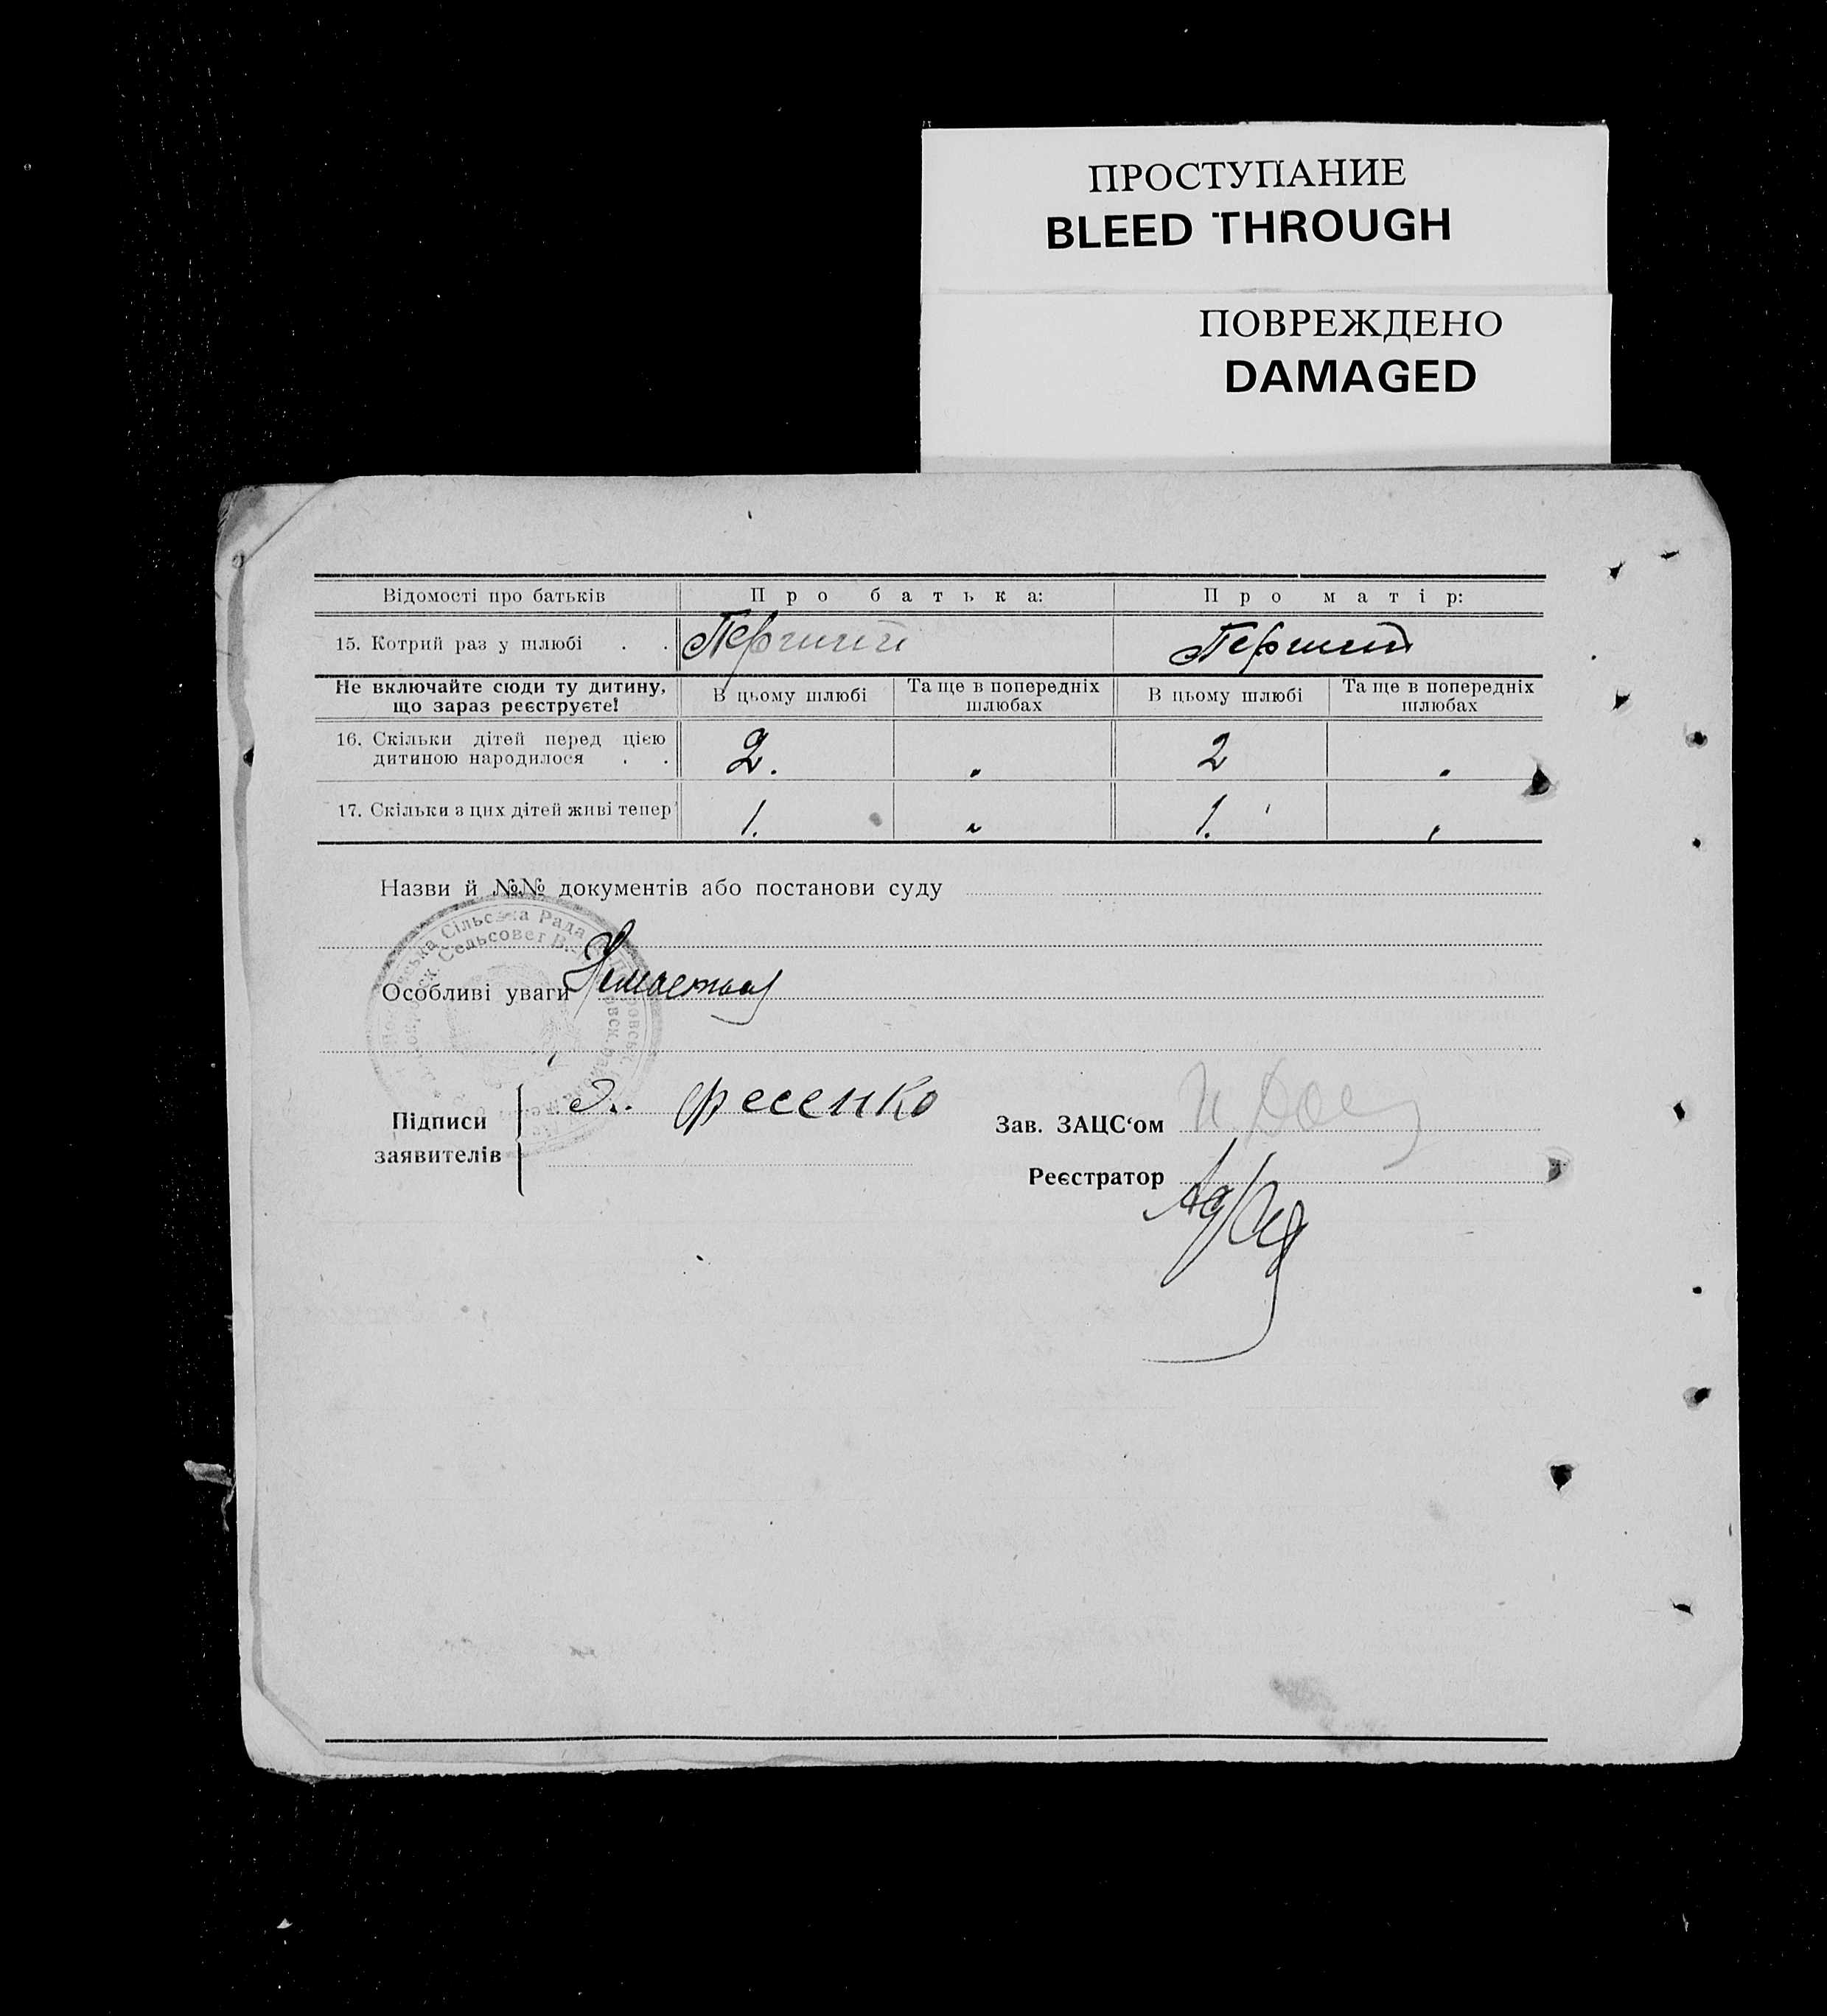 ПРОСТУПАНИЕ
BLEED THROUGH
ПОВРЕЖДЕНО
DAMAGED
Відомості про батьків Про батька: Про матір:
15. Котрий раз у шлюбі . . Перший Перший
Не включайте сюди ту дитину, що зараз реєструєте! В цьому шлюбі Та ще в попередніх шлюбах В цьому шлюбі Та ще в попередніх шлюбах
16. Скільки дітей перед цією
дитиною народилося . . 2. „ 2 „
17. Скільки з цих дітей живі тепер 1. „ 1. „
Назви й №№ документів або постанови суду
Сільська Рада
Сельсовет
Особливі уваги
Підписи заявителів
Фесенко
Зав. ЗАЦС‘ом
Реєстратор